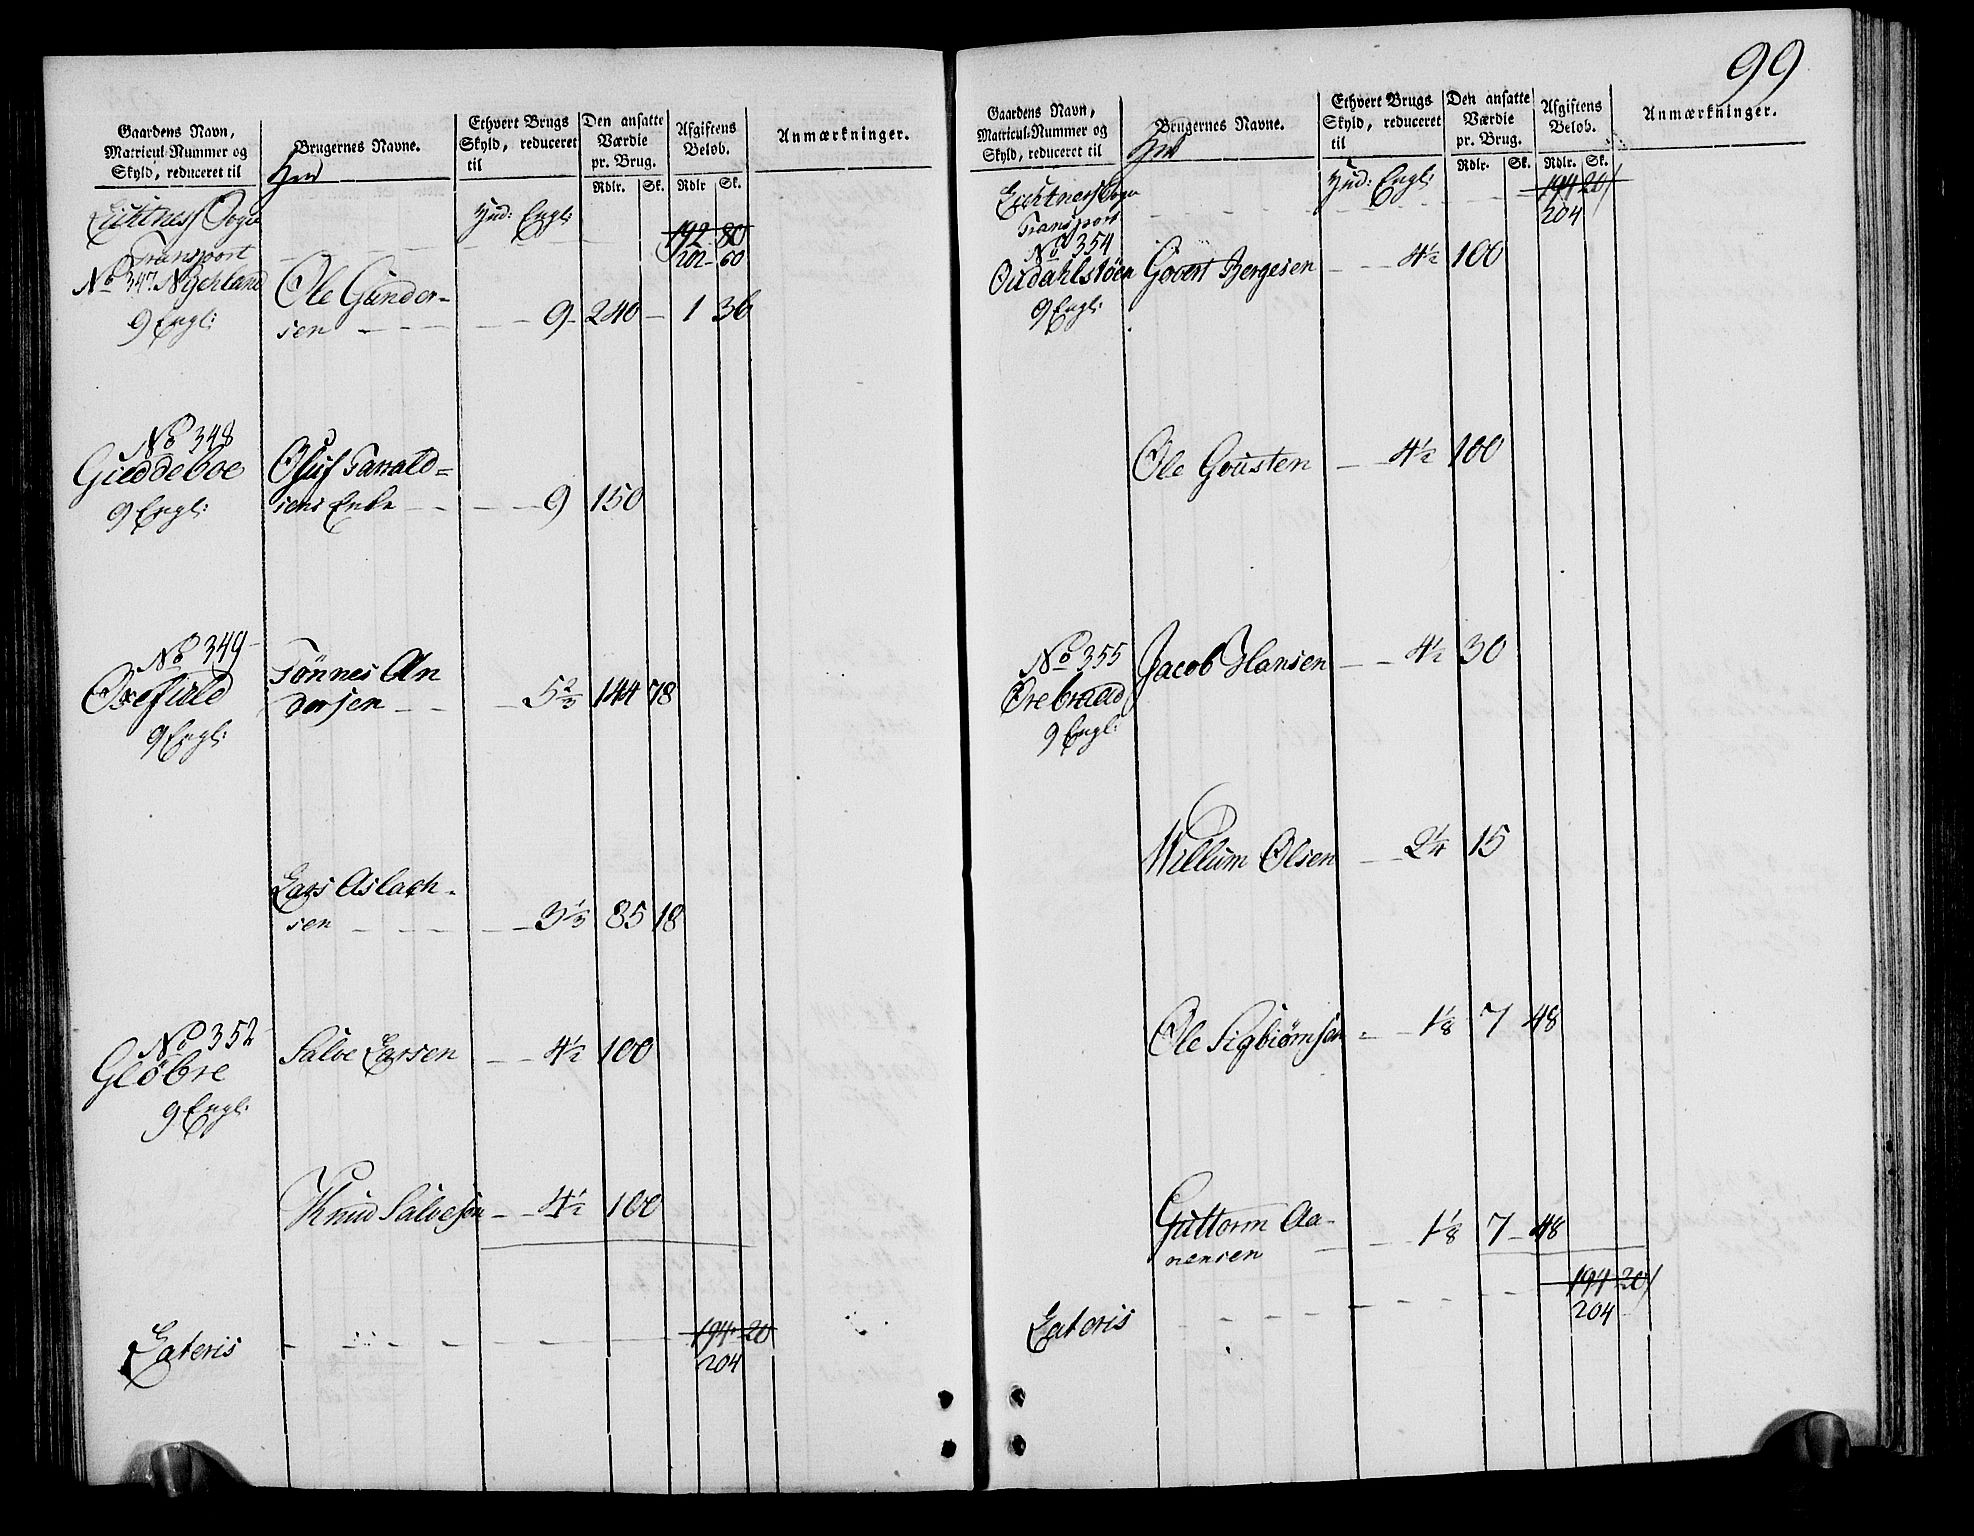 99
Gaardens Navn,
Matricul-Nummer og
Skyld, reduceret til
Brugernes Navne.
Ethvert Brugs
Skyld, reduceret
til
Den ansatte
Værdie
pr. Brug.
Rdlr. Sk.
Afgiftens
Beløb.
Rdlr Sk.
Anmærkninger.
Hud: Engl:
Sogn
Transport
192 80
202 60
No 347 Nychland
9 Engl:
Ole Gunder-
sen 9 240 1 36
No 348
Gieddeboe
9 Engl:
Oluf Taralds=
sens Enke 9 150
No 349
Oxefield
9 Engl:
Tönnes An
dersen 5 2/3 144 78
Lars Aslach-
sen 3 1/3 85 18
No 352
Glöbre
9 Engl:
Salve Larsen 4 1/2 100
Knud Salvesen 4 1/2 100
Lateris 194 20
204
Gaardens Navn,
Matricul-Nummer og
Skyld, reduceret til
Brugernes Navne.
Ethvert Brugs
Skyld, reduceret
til
Den ansatte
Værdie
pr. Brug.
Rdlr. Sk.
Afgiftens
Beløb.
Rdlr. Sk.
Anmærkninger.
Hud: Engl:
Sogn
Transport
194 20
204
No 354
Oudahlstöen
9 Engl:
Govert Bergesen 4 1/2 100
Ole Gousten 4 1/2 100
No 355
Ørebraad
9 Engl:
Jacob Hansen 4 1/2 30
Willum Olsen 2 1/4 15
Ole Sigbiörnsen 1 1/8 7 48
Guttorm Aa-
nensen 1 1/8 7 48
Lateris 194 20
204